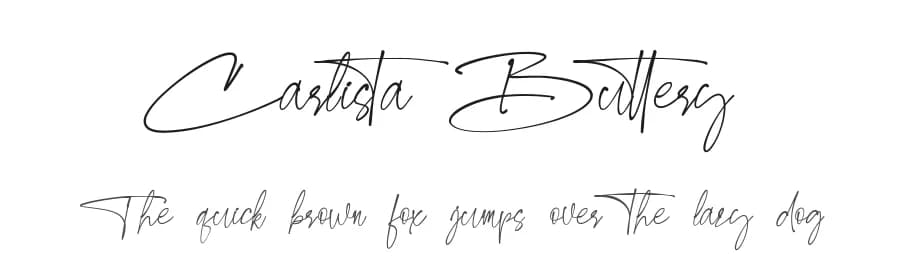 Carlista Buttery
The quick brown fox jumps over the lazy dog